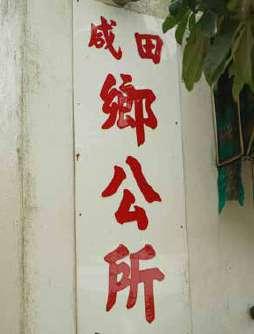 咸田
鄉公所